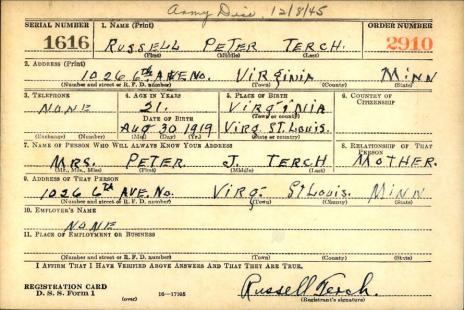 Army Dis. 12/8/45
SERIAL NUMBER 1. NAME (Print) ORDER NUMBER
1616 RUSSELL PETER TERCH. 2910
(First) (Middle) (Last)
2. ADDRESS (Print)
1026 6th AVE. NO. VIRGINIA MINN
(Number and street or R. F. D. number) (Town) (County) (State)
3. TELEPHONE 4. AGE IN YEARS 5. PLACE OF BIRTH 6. COUNTRY OF CITIZENSHIP
NONE 21. VIRGINIA
DATE OF BIRTH (Town or county)
AUG 30 1919 VIRG. ST. LOUIS.
(Exchange) (Number) (Mo.) (Day) (Yr.) (State or country)
7. NAME OF PERSON WHO WILL ALWAYS KNOW YOUR ADDRESS 8. RELATIONSHIP OF THAT PERSON
MRS. PETER J. TERCH MOTHER.
(Mr., Mrs., Miss) (First) (Middle) (Last)
9. ADDRESS OF THAT PERSON
1026 6th AVE. No. VIRG. St Louis. MINN
(Number and street or R. F. D. number) (Town) (County) (State)
10. EMPLOYER'S NAME
NONE
11. PLACE OF EMPLOYMENT OR BUSINESS
(Number and street or R. F. D. number) (Town) (County) (State)
I AFFIRM THAT I HAVE VERIFIED ABOVE ANSWERS AND THAT THEY ARE TRUE.
REGISTRATION CARD
D. S. S. Form 1 (over) 16—17105 Russell Terch.
(Registrant's signature)